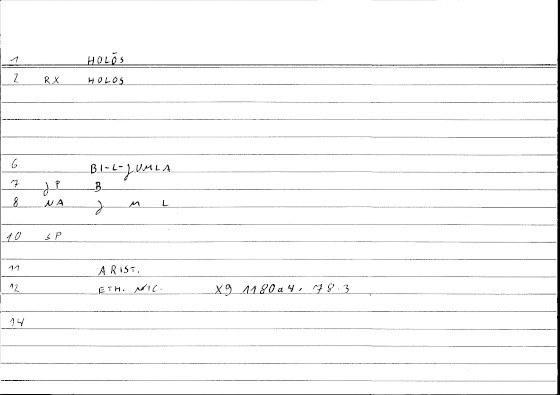 1 HOLŌS
2 RX HOLOS
6 BI-L-JUMLA
7 JP B
8 NA J M L
10 SP
11 ARIST.
12 ETH. NIC. X9 1180a4, 78.3
14